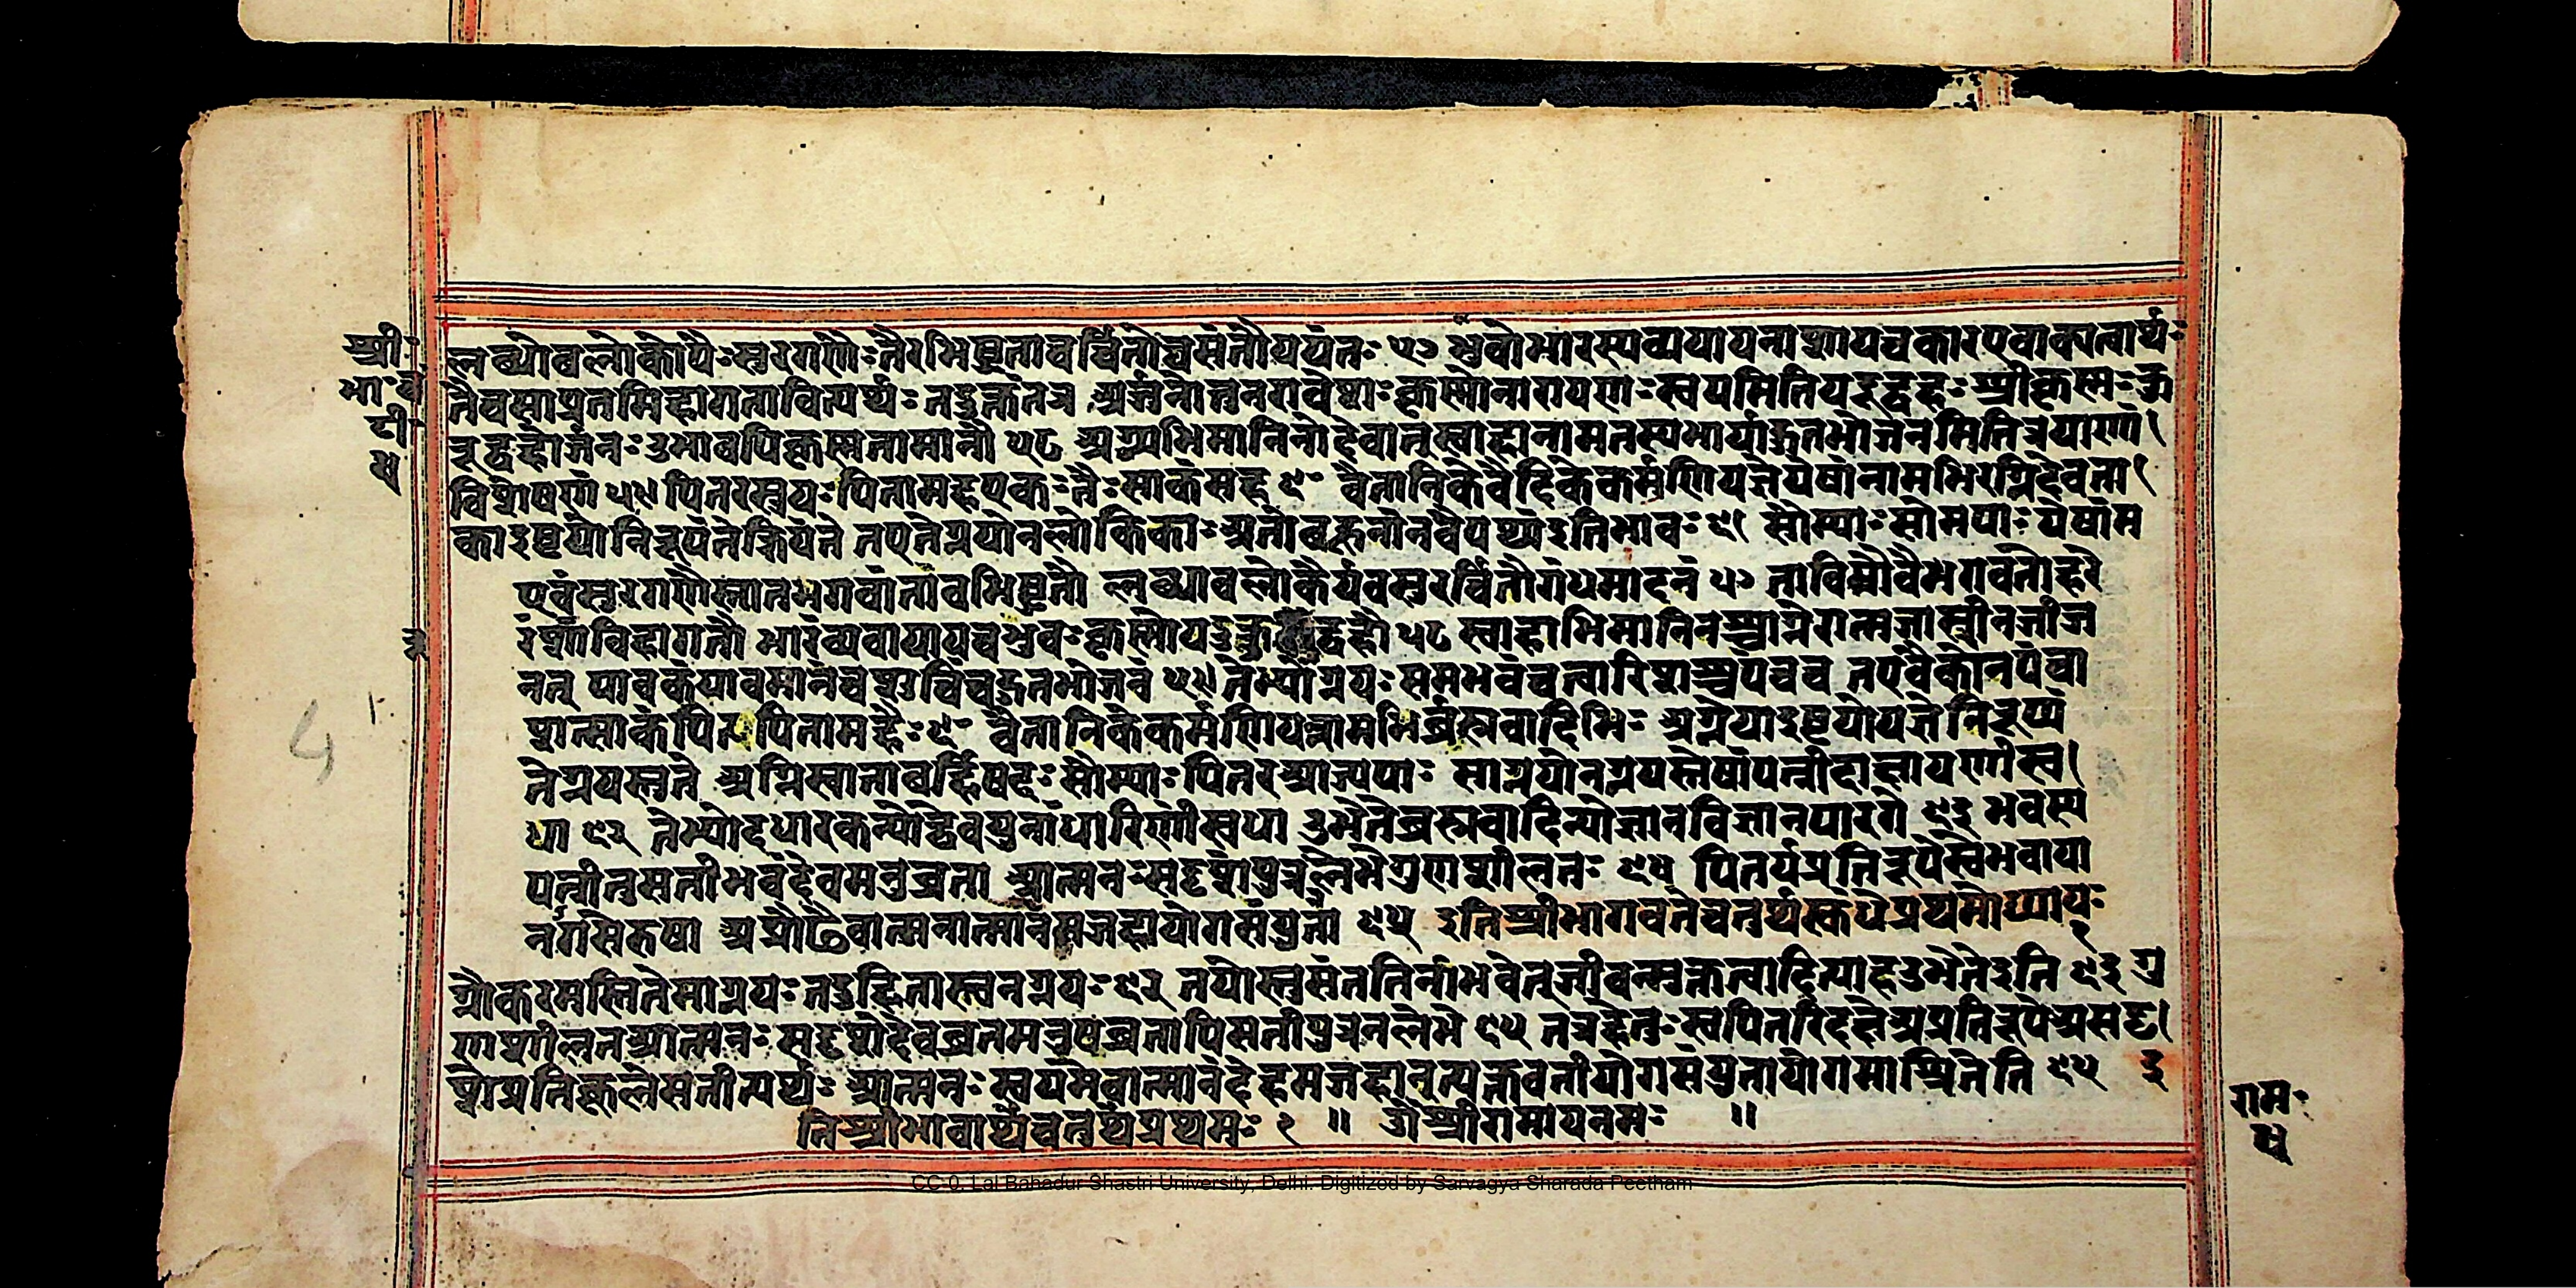 श्री·
भा·च
टी·
४
लब्धोवलोकोयैःसुरगणैःतैरभिष्टुतावर्चितौचसंतौययंतः ५७ भुवोभारस्यव्ययायनाशायचकारएवाकातार्थः
तैवसाप्रतमिहागतावित्यर्थः तदुक्तंतत्र अर्जुनेतुनरावेशःकृस्मोनारायणःस्वयमितियदूद्वहः श्रीकृस्मःकु
रूद्वहोर्जुनःउभावपिकृस्मनामानौ ५८ अग्न्यभिमानिनोदेवात्स्वाहानामतस्यभार्याहुतभोजनमितित्रयाणां
विशेषणं ५९ पितरस्त्रयःपितामहएकःतैःसाकंसह ६० वैतानिकेवैदिकेकर्मणियज्ञेयेषांनामभिरग्निदेवता
काइष्टयोनिरूप्यंतेक्रियंते तएतेग्नयोनलौकिकाःअतोबहुत्वेनवैयर्थ्यंइतिभावः ६१ सौम्याःसोमपाःयेषांम
एवंसुरगणैस्तातभगवंतावभिष्टुतौ लब्धावलोकैर्ययतुरर्चितौगंधमादनं ५७ ताविमौवैभगवतोहरे
रंशाविहागतौ भारव्ययायायचभुवःकृस्मौयदुकुरूद्वहौ ५८ स्वाहाभिमानिनश्चाग्नेरात्मजांस्त्रीनजीज
नत् पावकंपवमानंचशुचिंचहुतभोजनं ५९ तेभ्योग्नयःसमभवंचत्वारिंशाश्चपंचच तएवैकोनपंचा
शत्साकंपितृपितामहैः ६० वैतानिकेकर्मणियन्नामभिर्ब्रह्मवादिभिः आग्नेय्याइष्टयोयज्ञेनिरूप्यं
तेग्नयस्तुते अग्निस्वात्ताबर्हिषदःसौम्याःपितरआज्यपाः साग्नयोनग्नयस्तेषांपत्नीदाक्षायणीस्व
धा ६२ तेभ्योदधारकन्येद्वेवयुनांधारिणींस्वधा उभेतेब्रह्मवादिन्यौज्ञानविज्ञानपारगे ६३ भवस्य
पत्नीतुसतीभवंदेवमनुव्रता आत्मनःसदृशंपुत्रंनलेभेगुणशीलतः ६४ पितर्यप्रतिरूपेस्वेभवाया
नागसेरुषा अप्रौढैवात्मनात्मानमजहाद्योगसंयुता ६५ इतिश्रीभागवतेचतुर्थस्कंधेप्रथमोध्यायः
१
ग्नौकरमस्तितेसाग्नयःतद्रहितास्त्वनग्नयः ६२ तयोस्तुसंततिर्नाभवेत्जीवन्मुक्तत्वादित्याहउभेतेइति ६३ गु
णशीलतआत्मनःसदृशंदेवव्रतमनुव्रतापिसतीपुत्रंनलेभे ६४ तत्रहेतुःस्वपितरिदक्षेअप्रतिरूपेअसदृ
शेप्रतिकूलेसतीत्यर्थः आत्मनःस्वयमेवात्मानंदेहमजहात्त्यक्तवतीयोगसंयुतायोगमाश्रितेति ६५ इ
तिश्रीभावार्थेचतुर्थेप्रथमः १ ॥ ॐश्रीरामायनमः ॥
राम·
४
CC-0. Lal Bahadur Shastri University, Delhi. Digitized by Sarvagya Sharada Peetham